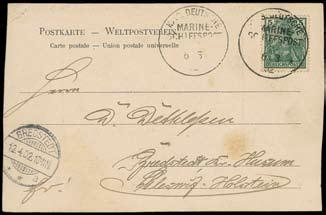 POSTKARTE – WELTPOSTVEREIN
Carte postale – Union postale universelle
K. D. DEUTSCHE
MARINE-
SCHIFFSPOST
DEUTSCHE
MARINE-
SCHIFFSPOST
Herrn
D. Dethlefsen
Bredstedt bei Husum
Schleswig-Holstein
BREDSTEDT
12.4.02